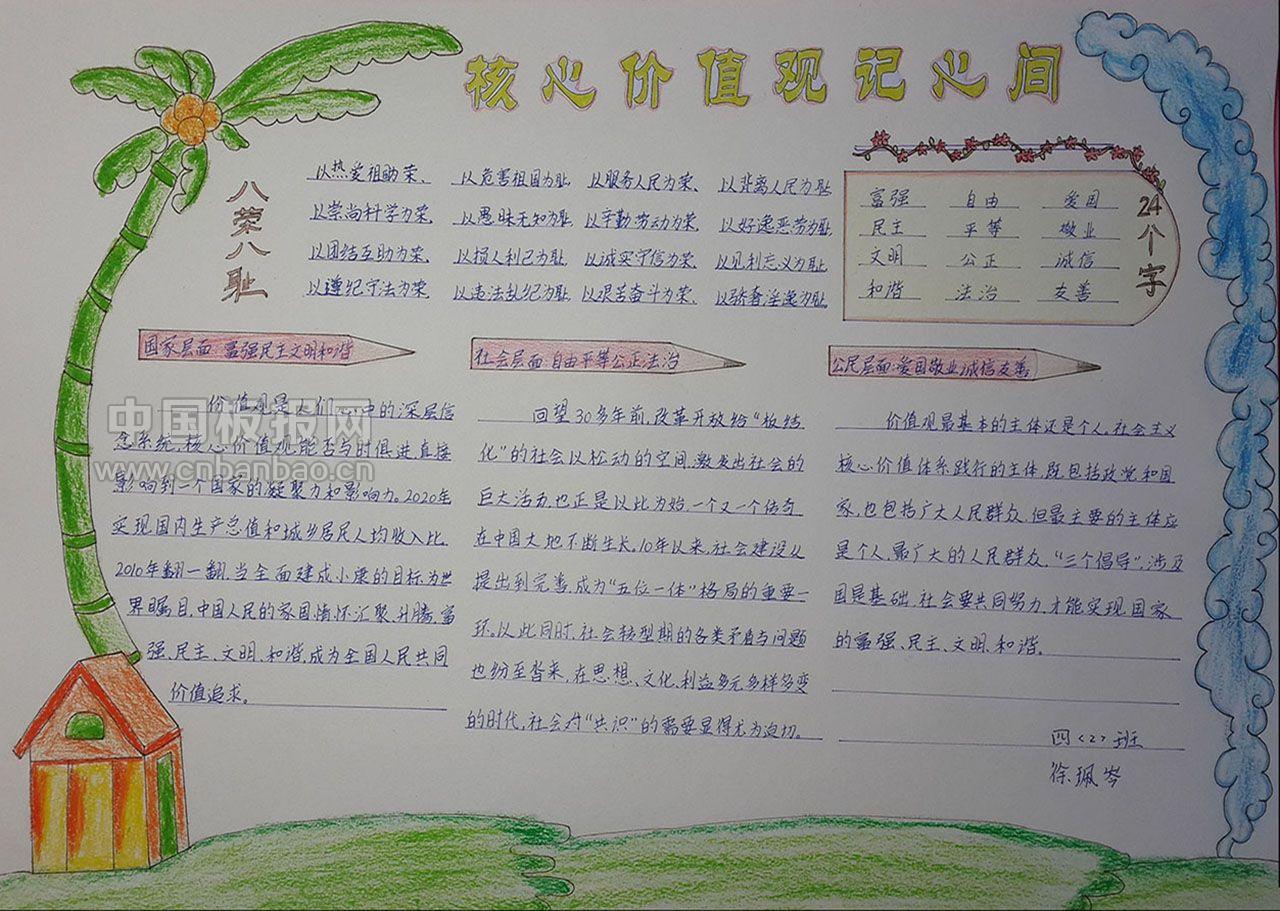 核心价值观记心间
八荣八耻
以热爱祖助荣、 以危害祖国为耻, 以服务人民为荣、 以背离人民为耻
以崇尚科学为荣、 以愚昧无知为耻, 以辛勤劳动为荣、 以好逸恶劳为耻,
以团结互助为荣、 以损人利己为耻, 以诚实守信为荣、 以见利忘义为耻,
以遵纪守法为荣、 以违法乱纪为耻, 以艰苦奋斗为荣、 以骄奢淫逸为耻,
24个字
富强 自由 爱国
民主 平等 敬业
文明 公正 诚信
和谐 法治 友善
国家层面:富强民主文明和谐
价值观是人们心中的深层信
念系统,核心价值观,能否与时俱进直接
影响到一个国家的凝聚力和影响力。2020年
实现国内生产总值和城乡居民人均收入比
2010年翻一翻,当全面建成小康的目标为世
界瞩目,中国人民的家国情怀汇聚,升腾,富
强、民主、文明、和谐,成为全国人民共同
价值追求。
社会层面:自由平等公正法治
回望30多年前,改革开放给“板结
化”的社会以松动的空间,激发出社会的
巨大活力,也正是以比为始,一个又一个传奇
在中国大地不断生长,10年以来,社会建设从
提出到完善,成为“五位一体”格局的重要一
环。以此同时,社会转型期的各类矛盾与问题
也纷至沓来,在思想、文化,利益多元多样多变
的时代,社会对“共识”的需要显得尤为迫切。
公民层面:爱国敬业诚信友善
价值观最基本的主体还是个人,社会主义
核心价值体系践行的主体,既包括政党和国
家,也包括广大人民群众,但最主要的主体应
是个人,最广大的人民群众,“三个倡导”,涉及
国是基础,社会要共同努力,才能实现,国家
的富强、民主、文明、和谐。
四<2>班
徐珮岑
中国板报网
www.cnbanbao.cn